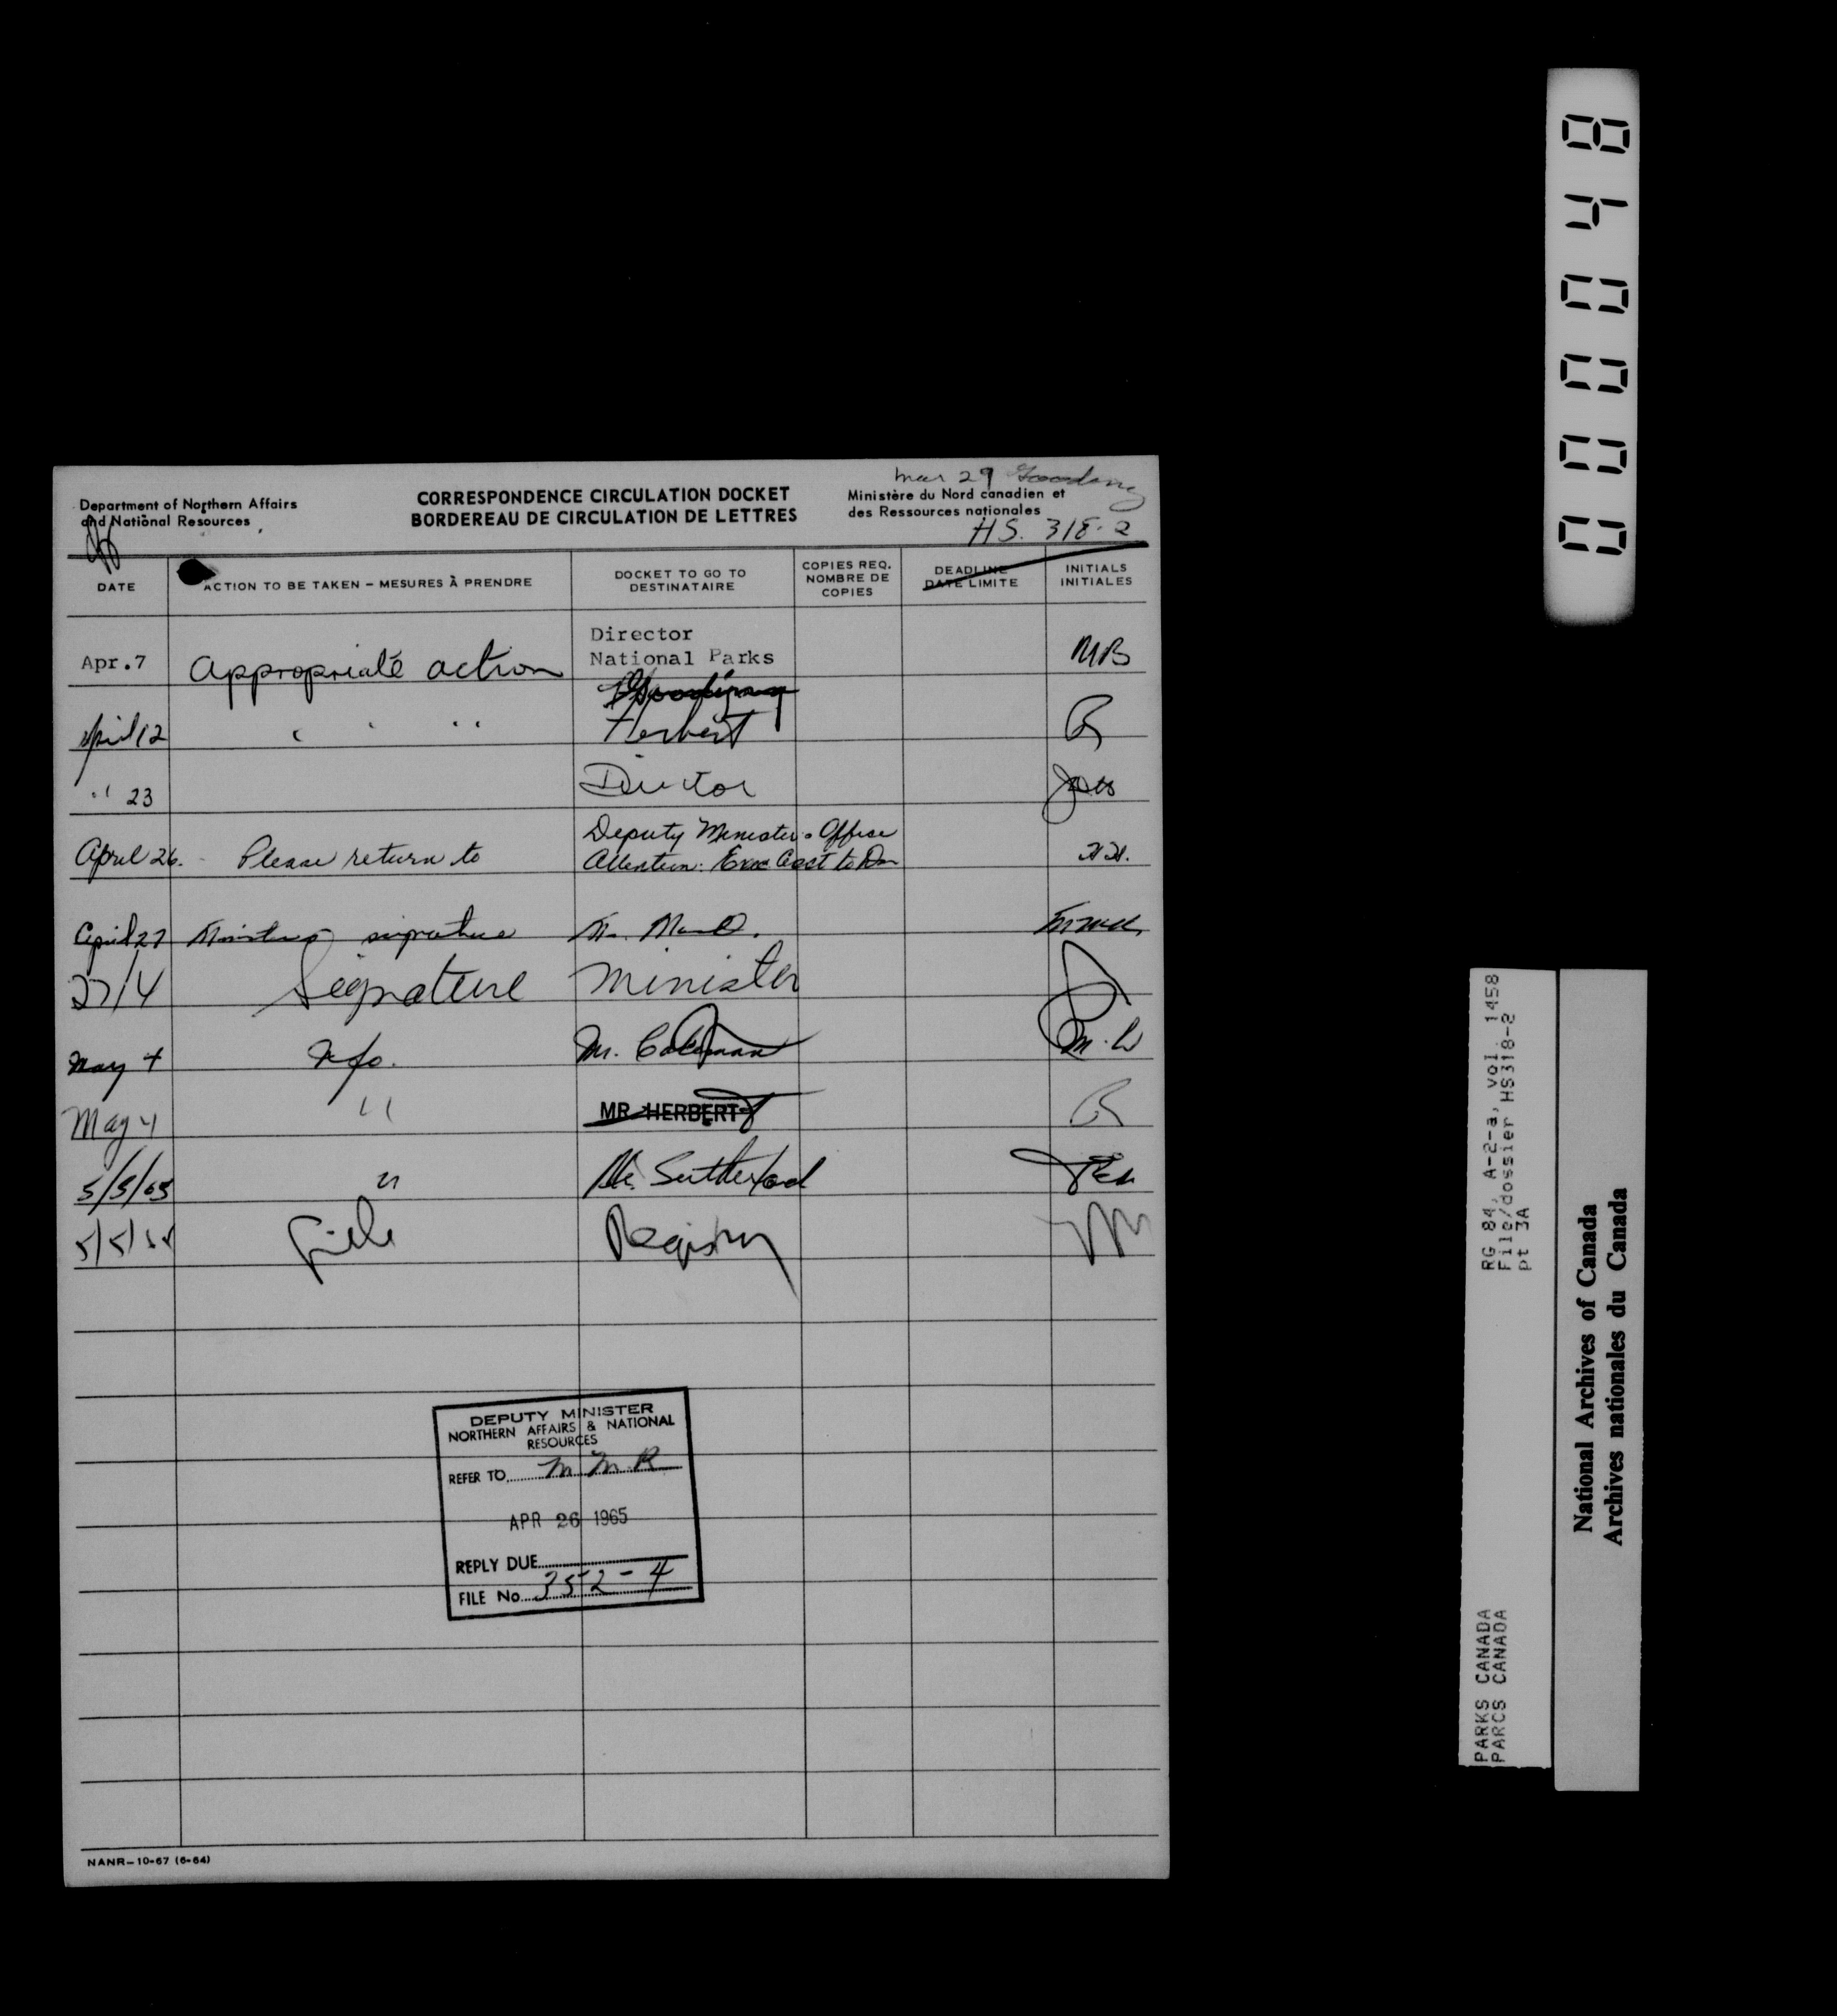 mar 29 Gooding
Department of Northern Affairs
and National Resources
CORRESPONDENCE CIRCULATION DOCKET
BORDEREAU DE CIRCULATION DE LETTRES
Ministère du Nord canadien et
des Ressources nationales
HS. 318-2
DATE
ACTION TO BE TAKEN – MESURES À PRENDRE
DOCKET TO GO TO
DESTINATAIRE
COPIES REQ.
NOMBRE DE
COPIES
DEADLINE
DATE LIMITE
INITIALS
INITIALES
Director
Apr.7 Appropriate action National Parks MB
Gooding
April 12 " " " Herbert
" 23 Director
Deputy Minister's Office
April 26. - Please return to Attention: Exec Asst to Dm
April 27 Minister's signature
27/4 Signature Minister
May 4 Info. Mr. Coleman
May 4 " MR. HERBERT
5/5/65 " Mr. Sutherland
5/5/65 File Registry
DEPUTY MINISTER
NORTHERN AFFAIRS & NATIONAL
RESOURCES
REFER TO M M R
APR 26 1965
REPLY DUE
FILE No. 352-4
NANR-10-67 (6-64)
000048
RG 84, A-2-a, vol. 1458
File/dossier HS318-2
pt 3A
PARKS CANADA
PARCS CANADA
National Archives of Canada
Archives nationales du Canada